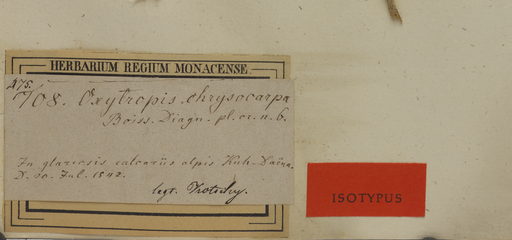 HERBARIUM REGIUM MONACENSE
275.
708. Oxytropis chrysocarpa
Boiss. Diagn. pl. or. n. 6.
In glareosis calcariis alpis Kuh-Daëna.
D. 10. Jul. 1842.
legt. Kotschy.
ISOTYPUS